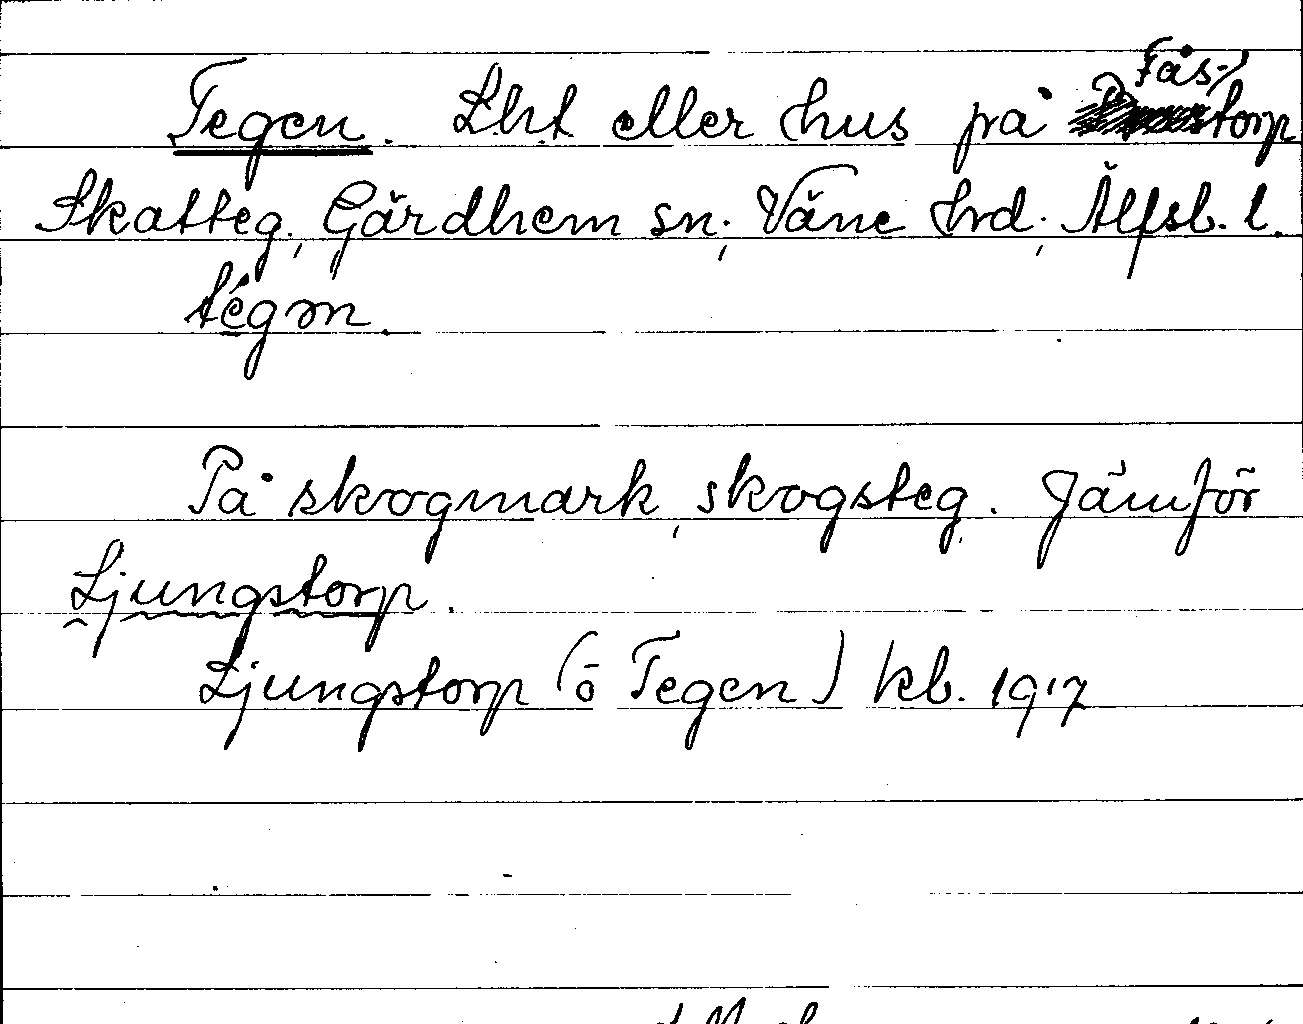 Tegen. Lht eller hus på Fåstorp
Skatteg., Gärdhem sn; Väne hrd; Älfsb. l.
tégɷn.
På skogmark, skogsteg. Jämför
Ljungstorp.
Ljungstorp (ö Tegen) kb. 1917